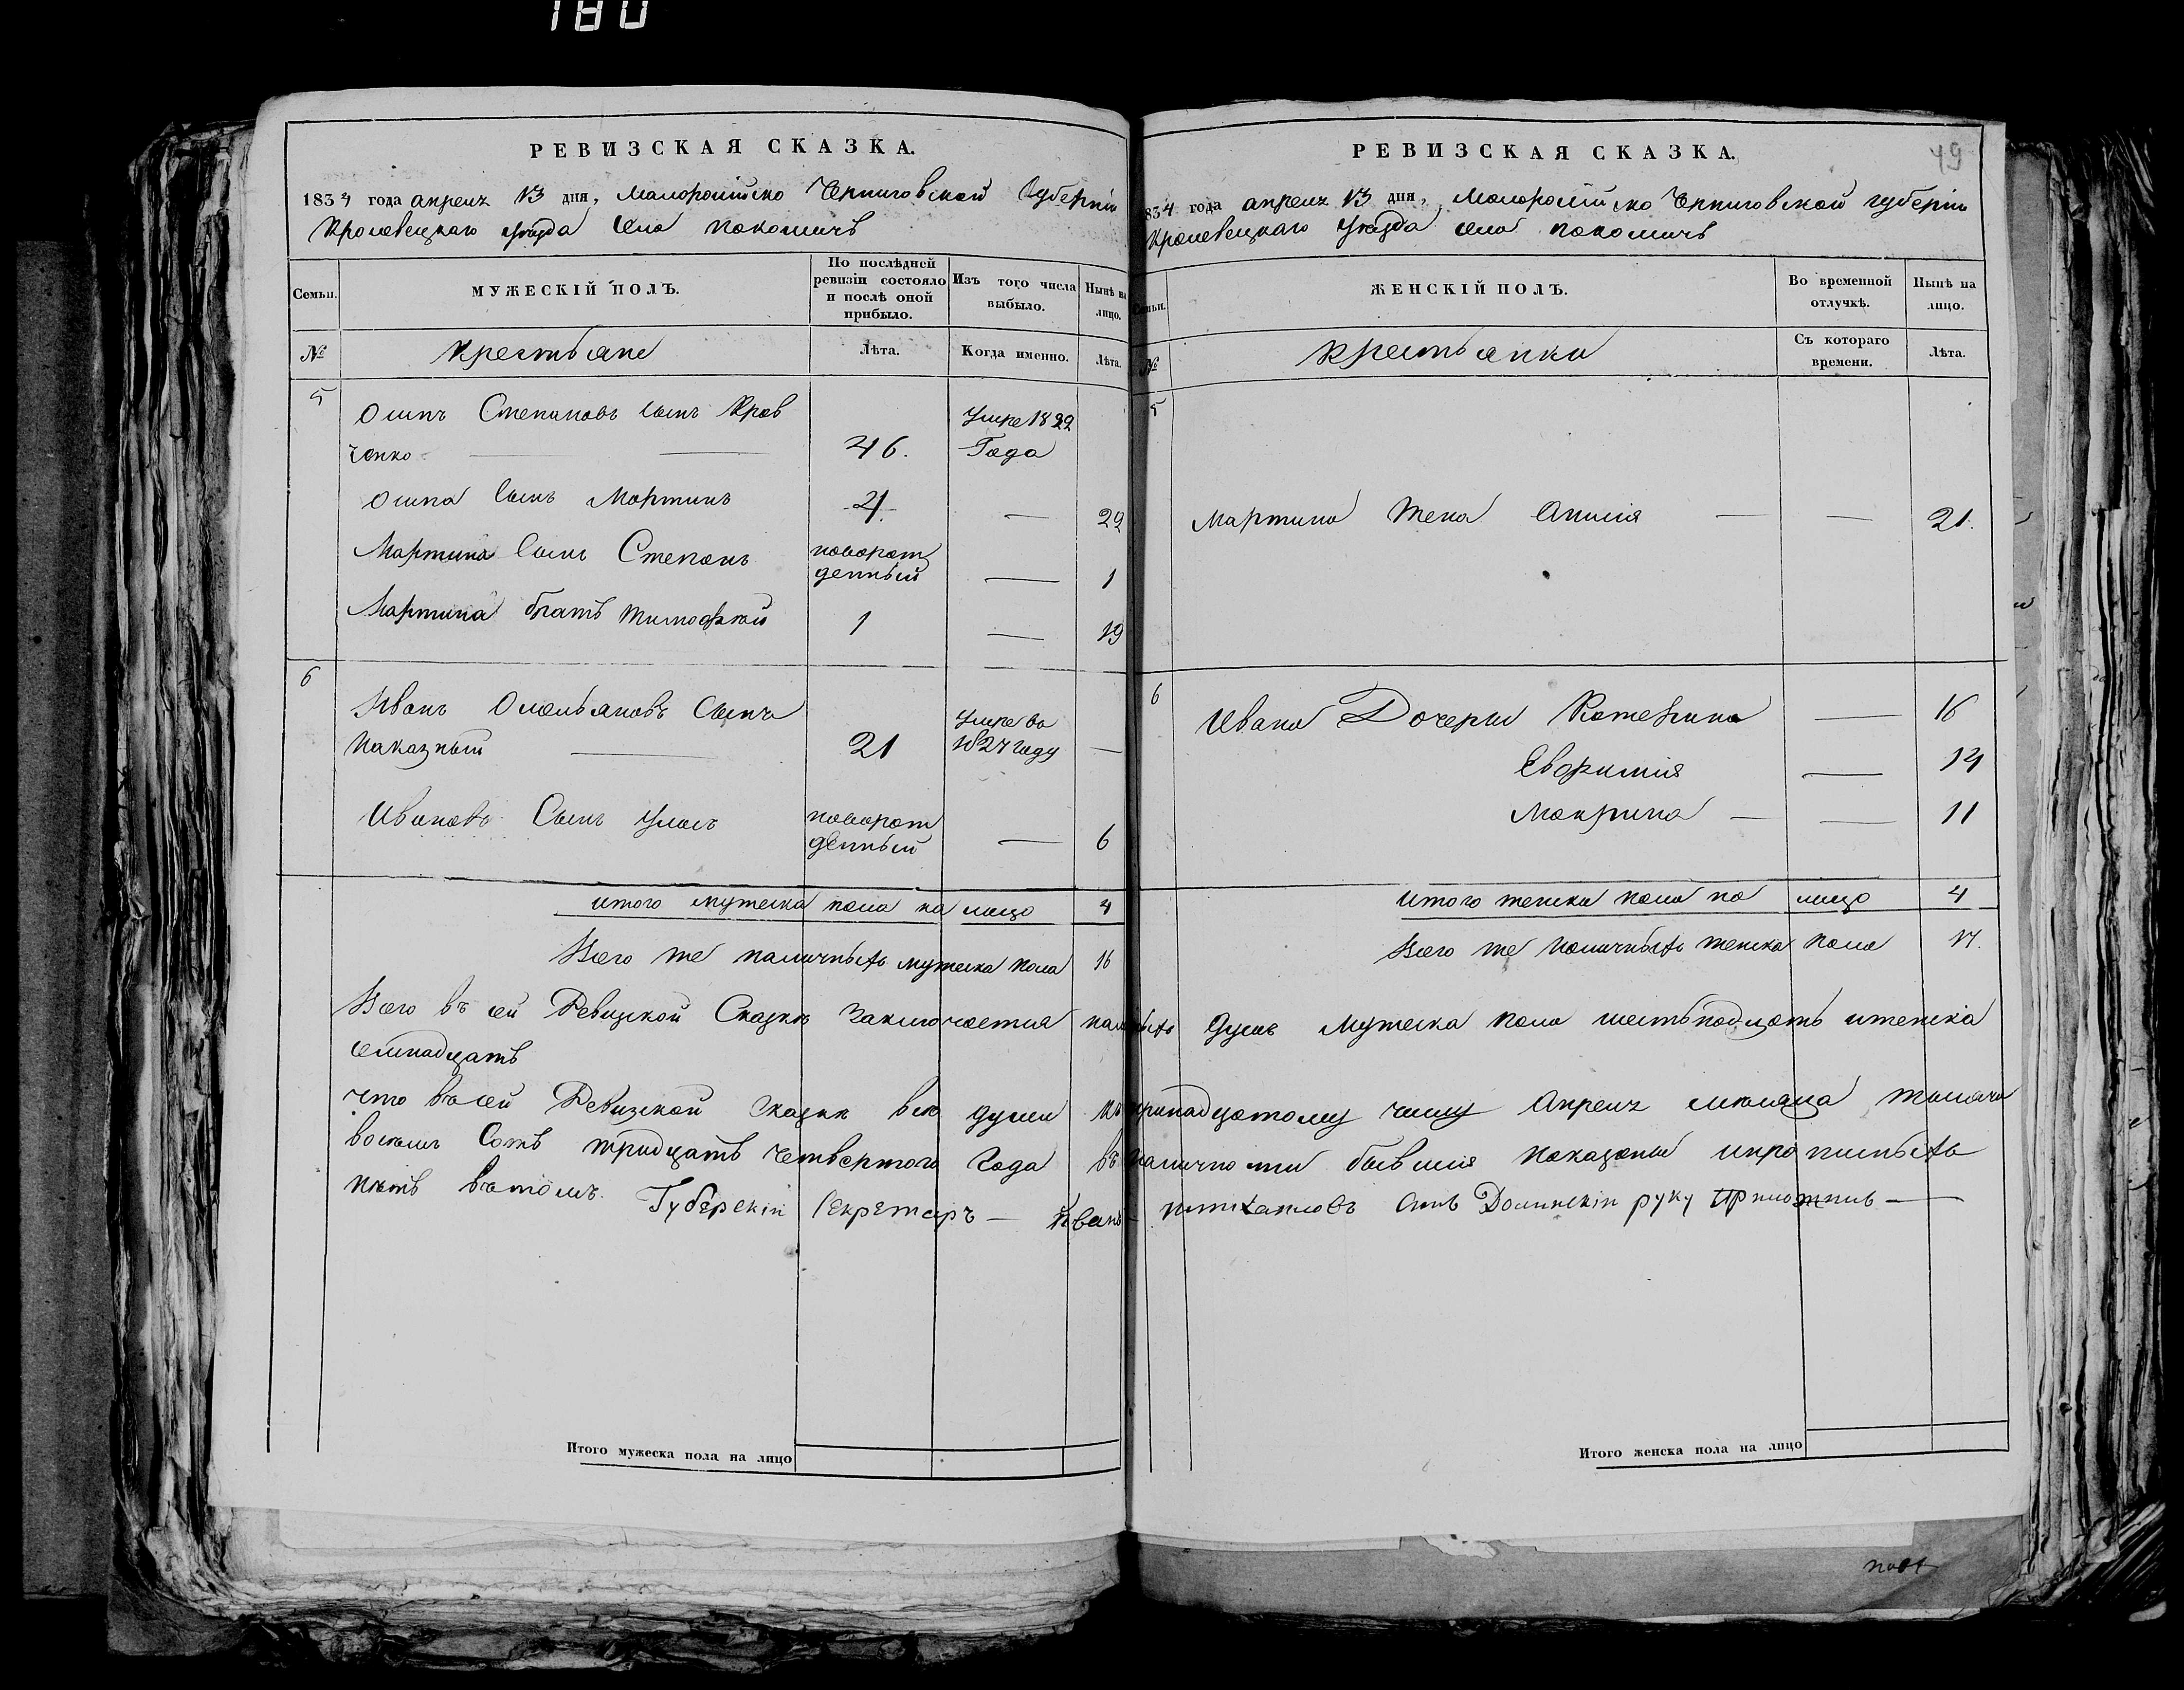 180
РЕВИЗСКАЯ СКАЗКА.
1834 года апреля 13 дня, Малороссійско Черниговской Губерніи
Кролевецкаго уѣзда села Покошичъ
Семьи.
МУЖЕСКІЙ ПОЛЪ.
По послѣдней ревизіи состояло и послѣ оной прибыло.
Изъ того числа выбыло.
Нынѣ на лицо.
№
Крестьяне
Лѣта.
Когда именно.
Лѣта.
5
Осипъ Степановъ сынъ Крав
ченко
46.
Умре 1822
Года
Осипа сынъ Мартинъ
4.
29
Мартина сынъ Степанъ
новорож
денный
1
Мартина братъ Тимофѣй
1
19
6
Иванъ Омельяновъ Сынъ
Наказный
21
Умре въ
1827 году
Ивановъ Сынъ
новорож
денный
6
итого мужеска пола на лицо 4
Всего же наличныхъ мужеска пола 16
РЕВИЗСКАЯ СКАЗКА.
49
834 года апреля 13 дня, Малороссійско Черниговской губерніи
Кролевецкаго Уѣзда села Покошичъ
Семьи.
ЖЕНСКІЙ ПОЛЪ.
Во временной отлучкѣ.
Нынѣ на лицо.
№
Крестьянки
Съ котораго времени.
Лѣта.
5
Мартина жена Анисія
21.
6
Ивана Дочери Катерина
16
Евфимія
14
Макрина
11
итого женска пола на лицо 4
Всего же наличныхъ женска пола 17.
Всего въ сей Ревизской Сказкѣ заключается наличныхъ душъ мужеска пола шестьнадцать иженска
семнадцать
что въсей Ревизской сказкѣ все души ктринадцатому числу Апреля мѣсяца тысяча
восемь Сотъ тридцать четвертого Года въ наличности бывшія показаны ипрописныхъ
нѣтъ въ томъ. Губерскій Секретаръ — Иванъ Сынъ Долинскій руку приложилъ —
Итого мужеска пола на лицо
Итого женска пола на лицо